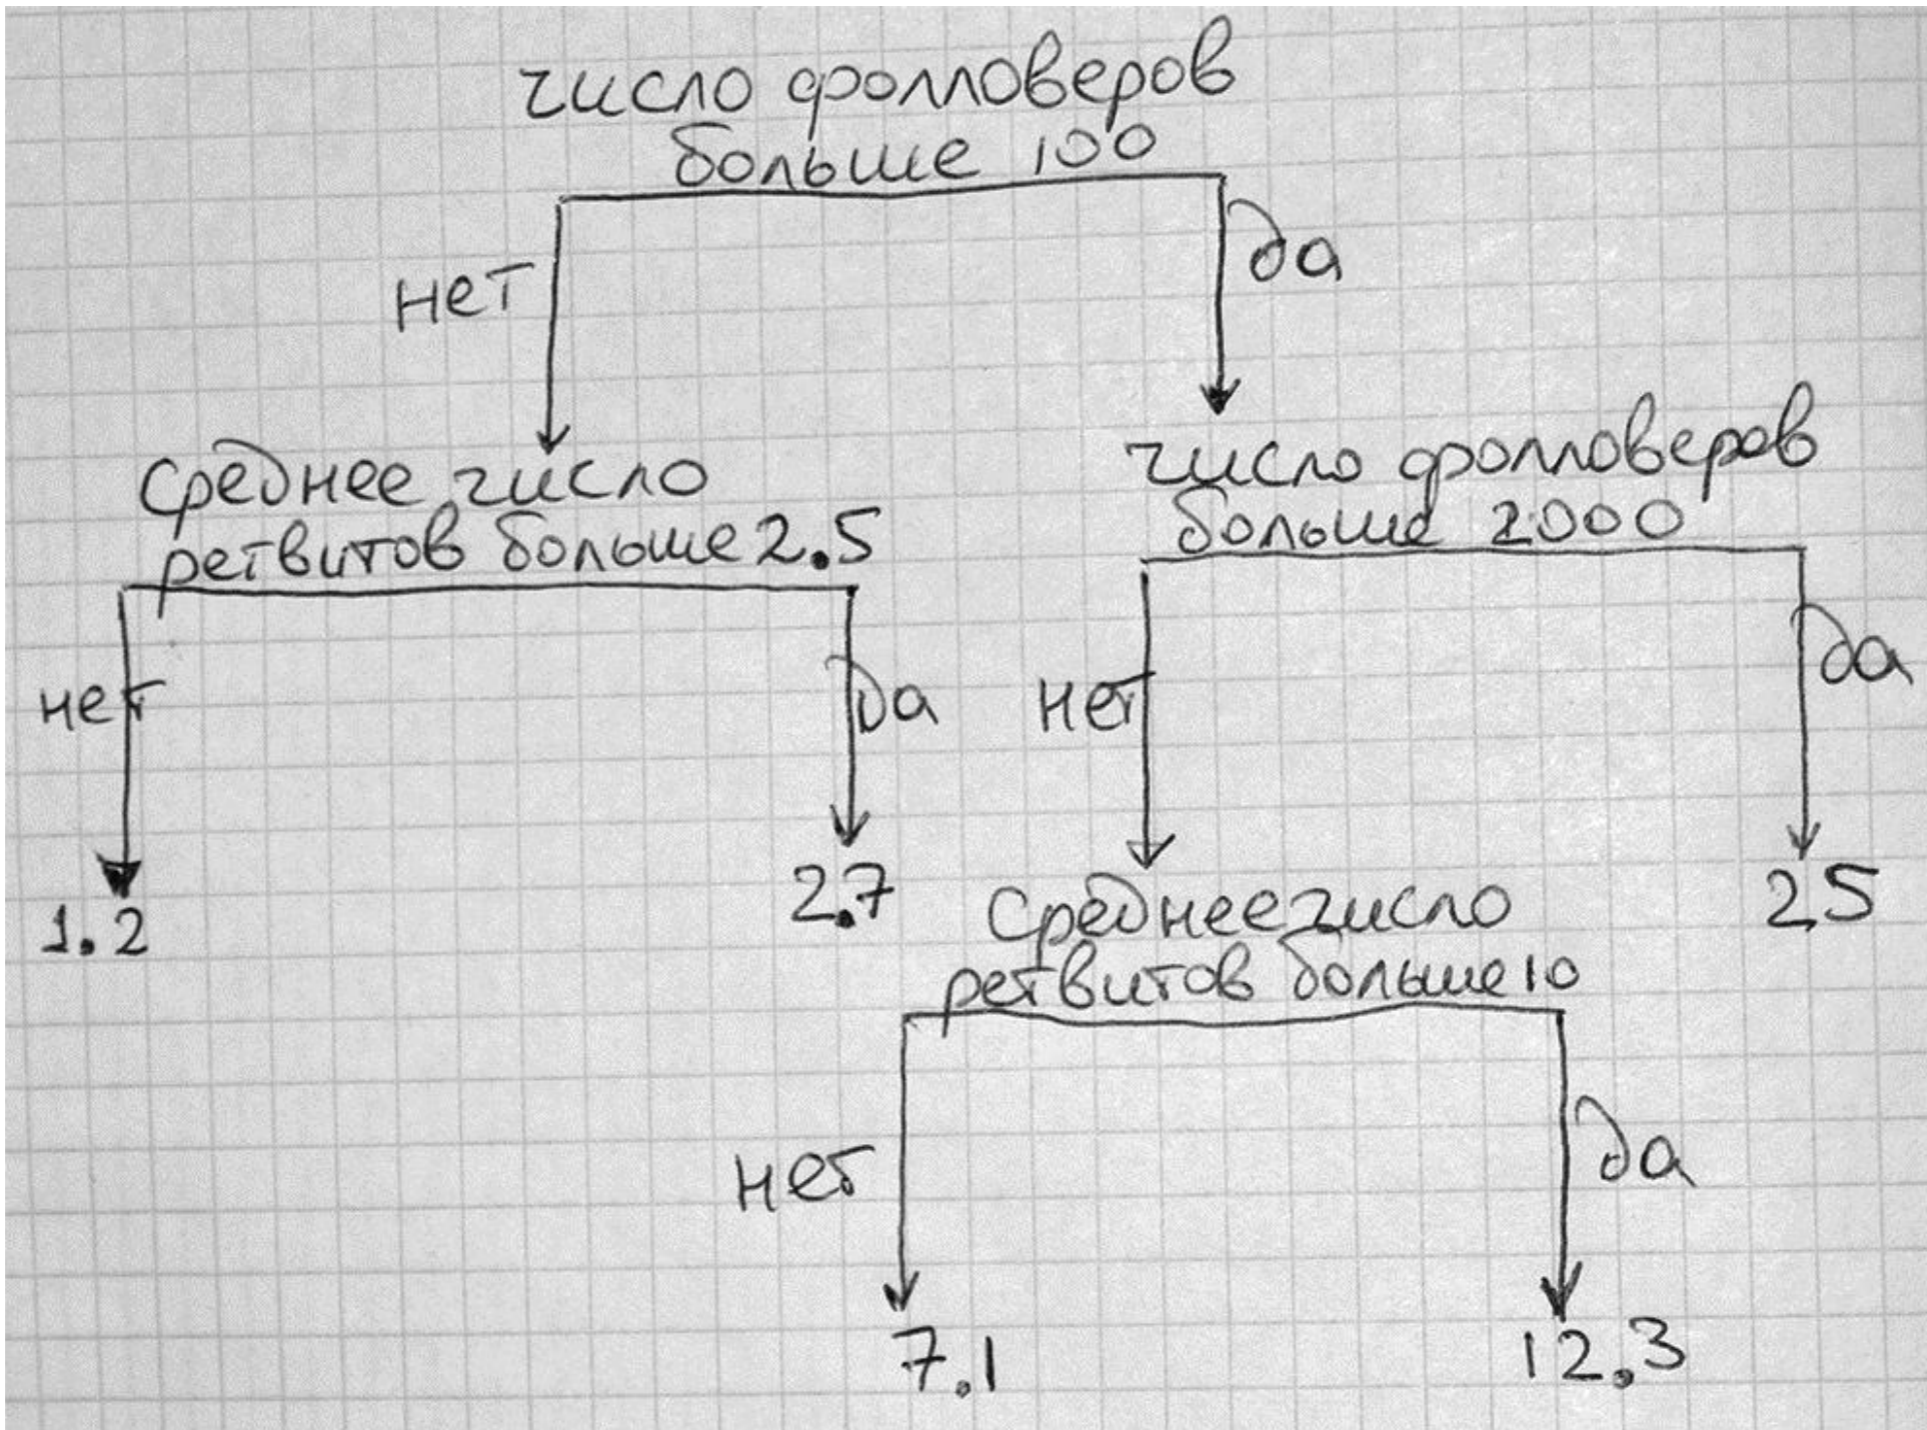 число фолловеров
больше 100
нет
да
Среднее число
ретвитов больше 2.5
число фолловеров
больше 2000
нет
да
нет
да
1.2
2.7
Среднее число
ретвитов больше 10
25
нет
да
7.1
12.3